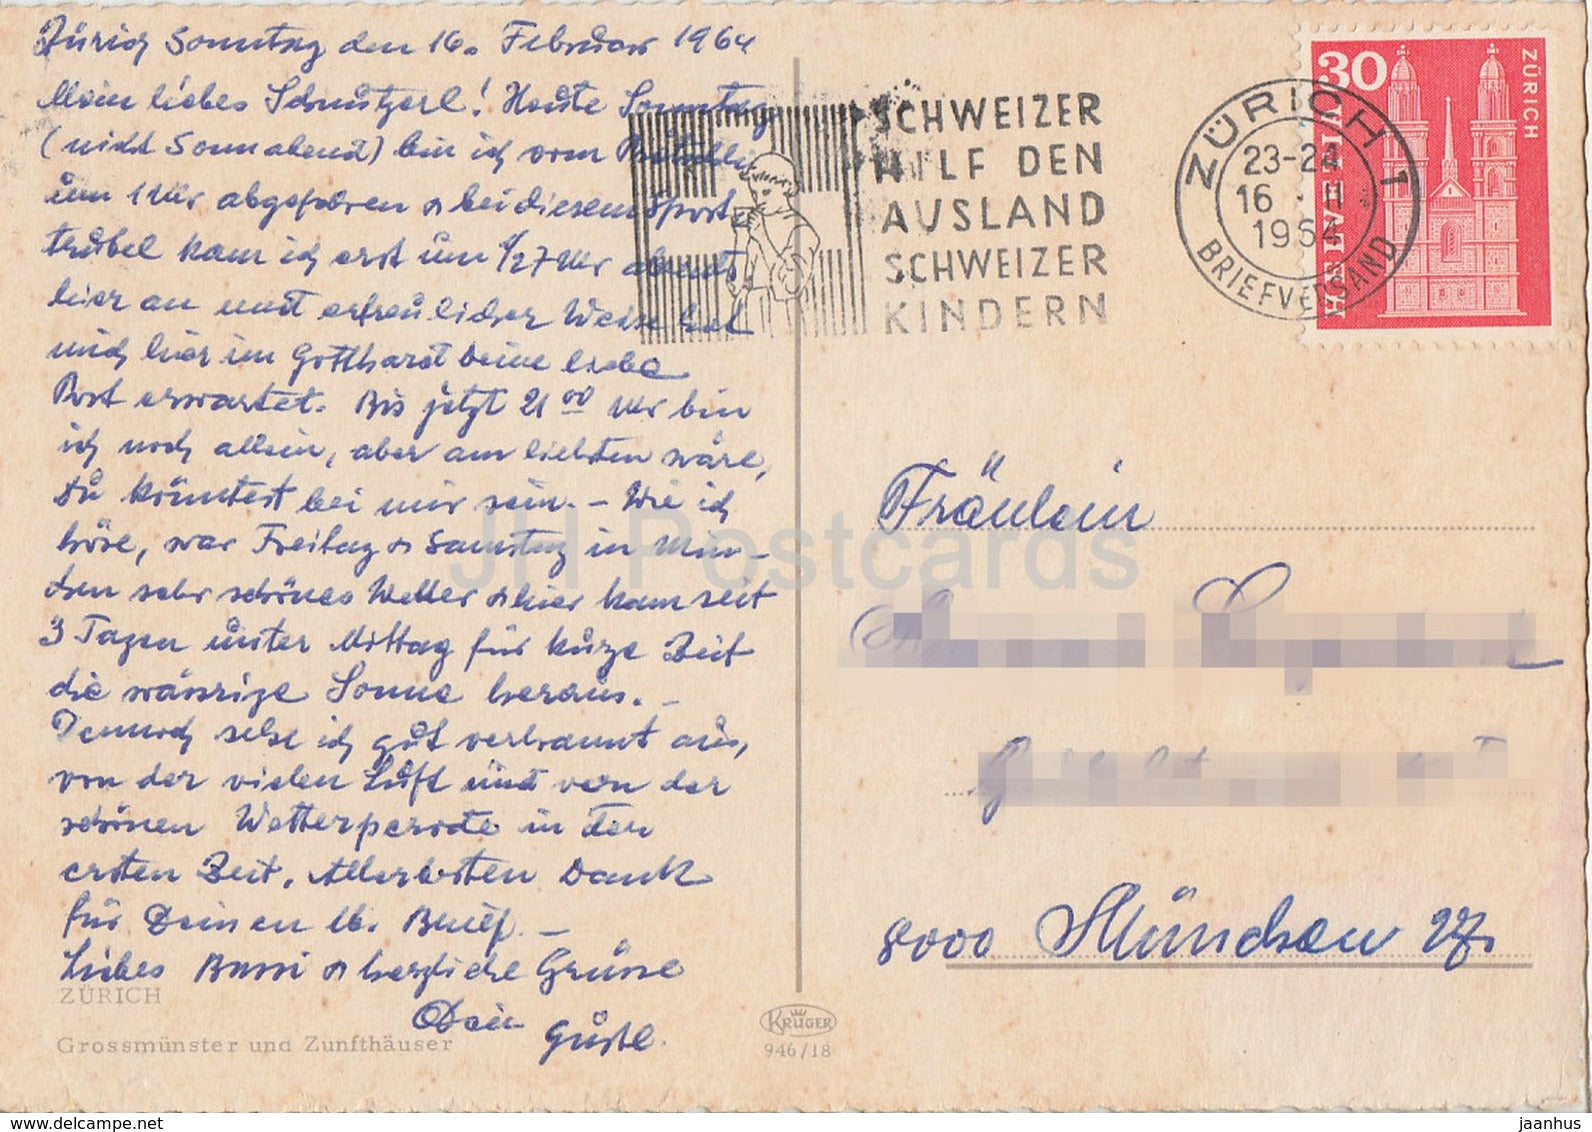 Zürich Sonntag den 16. Februar 1964
Mein liebes Schnutzerl! Heute Sonntag
(nicht Sonnabend) bin ich vom
um 1 Uhr abgefahren & bei diesem Sport
trubel kam ich erst um 1/27 Uhr abends
hier an und erfreulicher Weise hat
mich hier im Gotthard Deine liebe
Post erwartet. Bis jetzt 21 00 Uhr bin
ich noch allein, aber am liebsten wäre,
Du könntest bei mir sein. – Wie ich
höre, war Freitag & Samstag in Mün-
chen sehr schönes Wetter & hier kam seit
3 Tagen unter Mittag für kurze Zeit
die wässrige Sonne heraus. –
Dennoch sehe ich gut verbrannt aus,
von der vielen Luft und von der
schönen Wetterperiode in der
ersten Zeit. Allerbesten Dank
für Deinen lb. Brief. –
Liebes Bussi & herzliche Grüsse
Dein Gustl.
ZÜRICH
Grossmünster und Zunfthäuser
KRÜGER
946/18
SCHWEIZER
HILF DEN
AUSLAND
SCHWEIZER
KINDERN
ZÜRICH 1
23-24
16 · II
1964
BRIEFVERSAND
30
ZÜRICH
HELVETIA
Fräulein
8000 München 27.
JH Postcards
www.delcampe.net
jaanhus